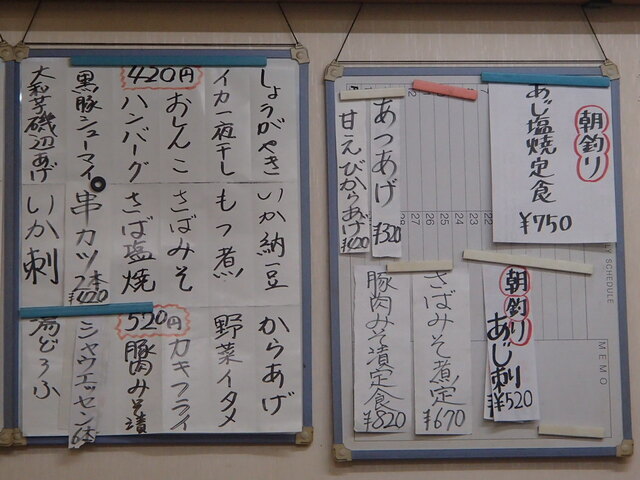 しょうがやき
いか納豆
からあげ
イカ一夜干し
もつ煮
野菜イタメ
おしんこ
さばみそ
カキフライ
420円
ハンバーグ
さば塩焼
520円
豚肉みそ漬
黒豚シューマイ
串カツ
2本
¥420
シャウエッセン
6本
大和芋磯辺あげ
いか刺
どうふ
朝釣り
あじ塩焼定食
¥750
あつあげ
¥320
甘えびからあげ
¥420
朝釣り
あじ刺
¥520
さばみそ煮定
¥670
豚肉みそ漬定食
¥820
27
26
25
24
23
22
LY SCHEDULE
MEMO